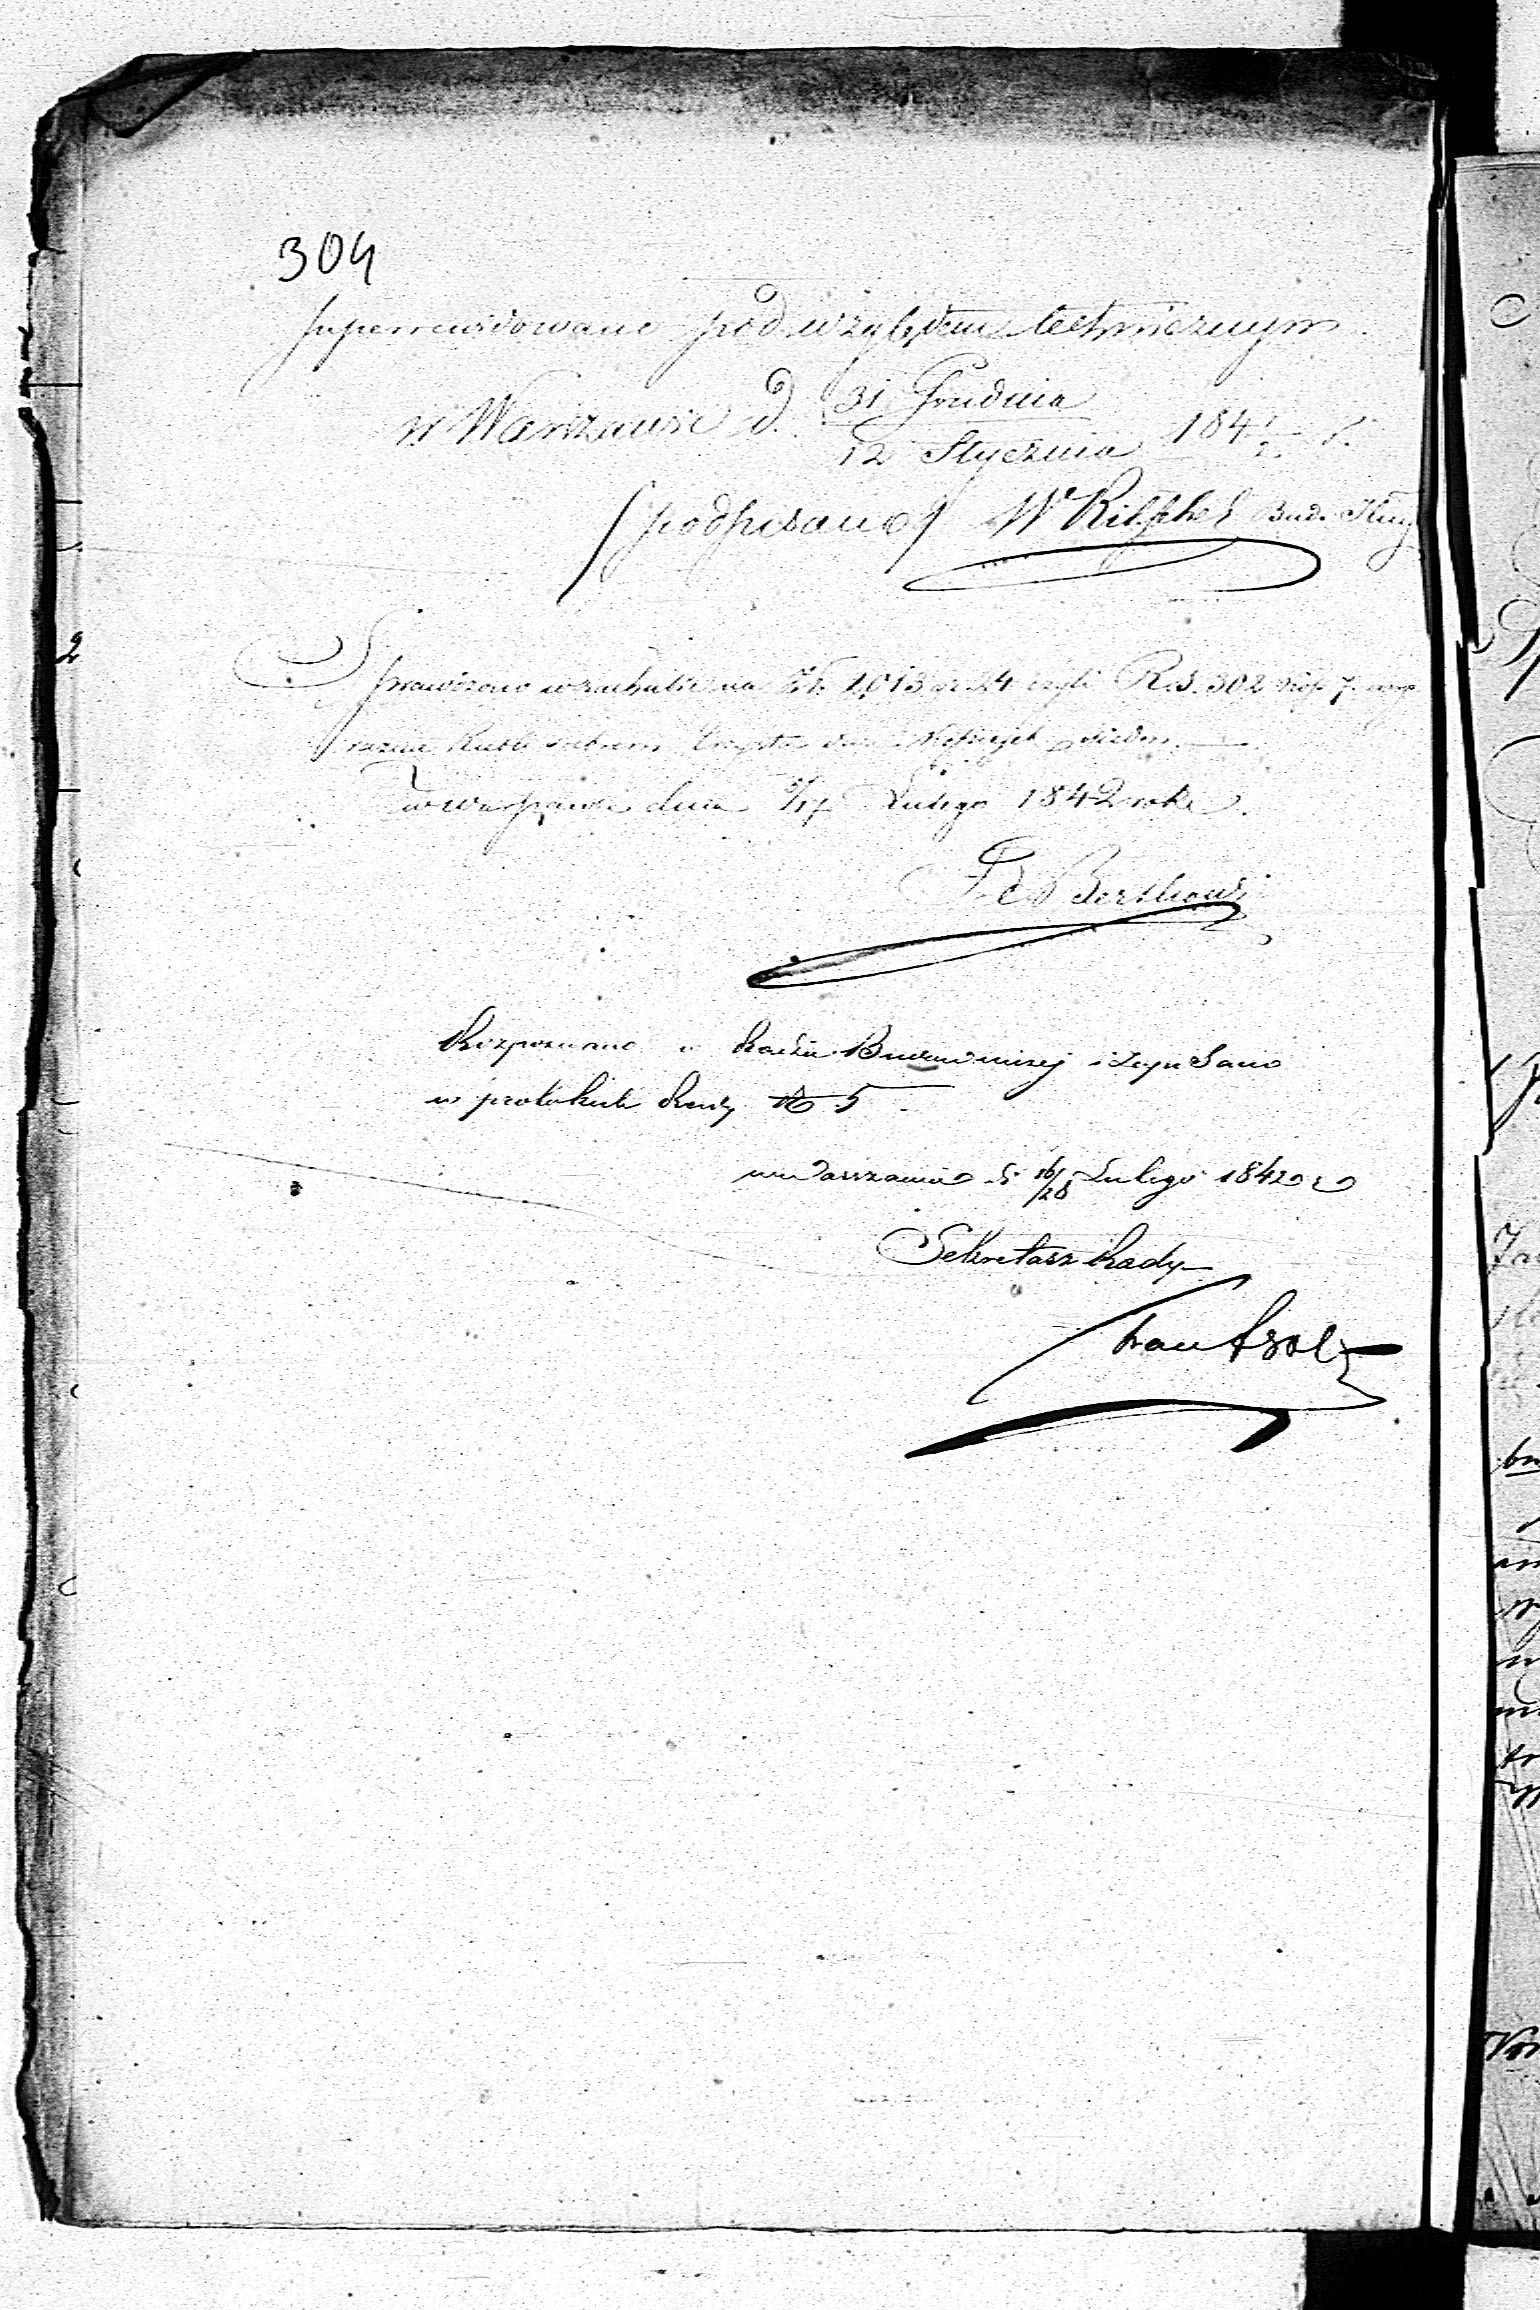 304
Superrewidowano pod względem technicznym
w Warszawie d. 31 Grudnia / 12 Stycznia 184 1/2 r.
/podpisano/ W Ritschel Bud.
Sprawdzono w rachunku na Złt. 2,013 gr 24 czyli R.S. 302 kop 7
Rubli srebrem trzysta dwa Kopiejek siedm.
w Warszawie dnia 5/17 Lutego 1842 roku.
Rozpoznano w Radzie Budowniczej i zapisano
w protokule Rady № 5
w Warszawie d. 16/28 Lutego 1842 r
Sekretarz Rady